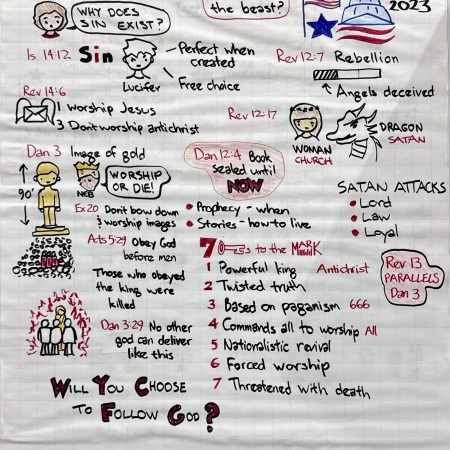 the beast?
2023
WHY DOES
SIN EXIST?
Is 14:12 Sin
Lucifer
Perfect when
created
Free choice
Rev 12:7 Rebellion
Angels deceived
Rev 14:6
1 worship Jesus
3 Don't worship antichrist
Rev 12:17
WOMAN
CHURCH
DRAGON
SATAN
Dan 3 Image of gold
90'
NEB
WORSHIP
OR DIE!
Ex 20 Don't bow down
& worship images
Acts 5:29 Obey God
before men
Those who obeyed
the king were
killed
Dan 3:29 No other
god can deliver
like this
Dan 12:4 Book
sealed until
NOW
Prophecy - when
Stories - how to live
SATAN ATTACKS
Lord
Law
Loyal
7 s to the MARK
1 Powerful king Antichrist
2 Twisted truth
3 Based on paganism 666
4 Commands all to worship All
5 Nationalistic revival
6 Forced worship
7 Threatened with death
Rev 13
PARALLELS
Dan 3
WILL YOU CHOOSE
TO FOLLOW GOD?